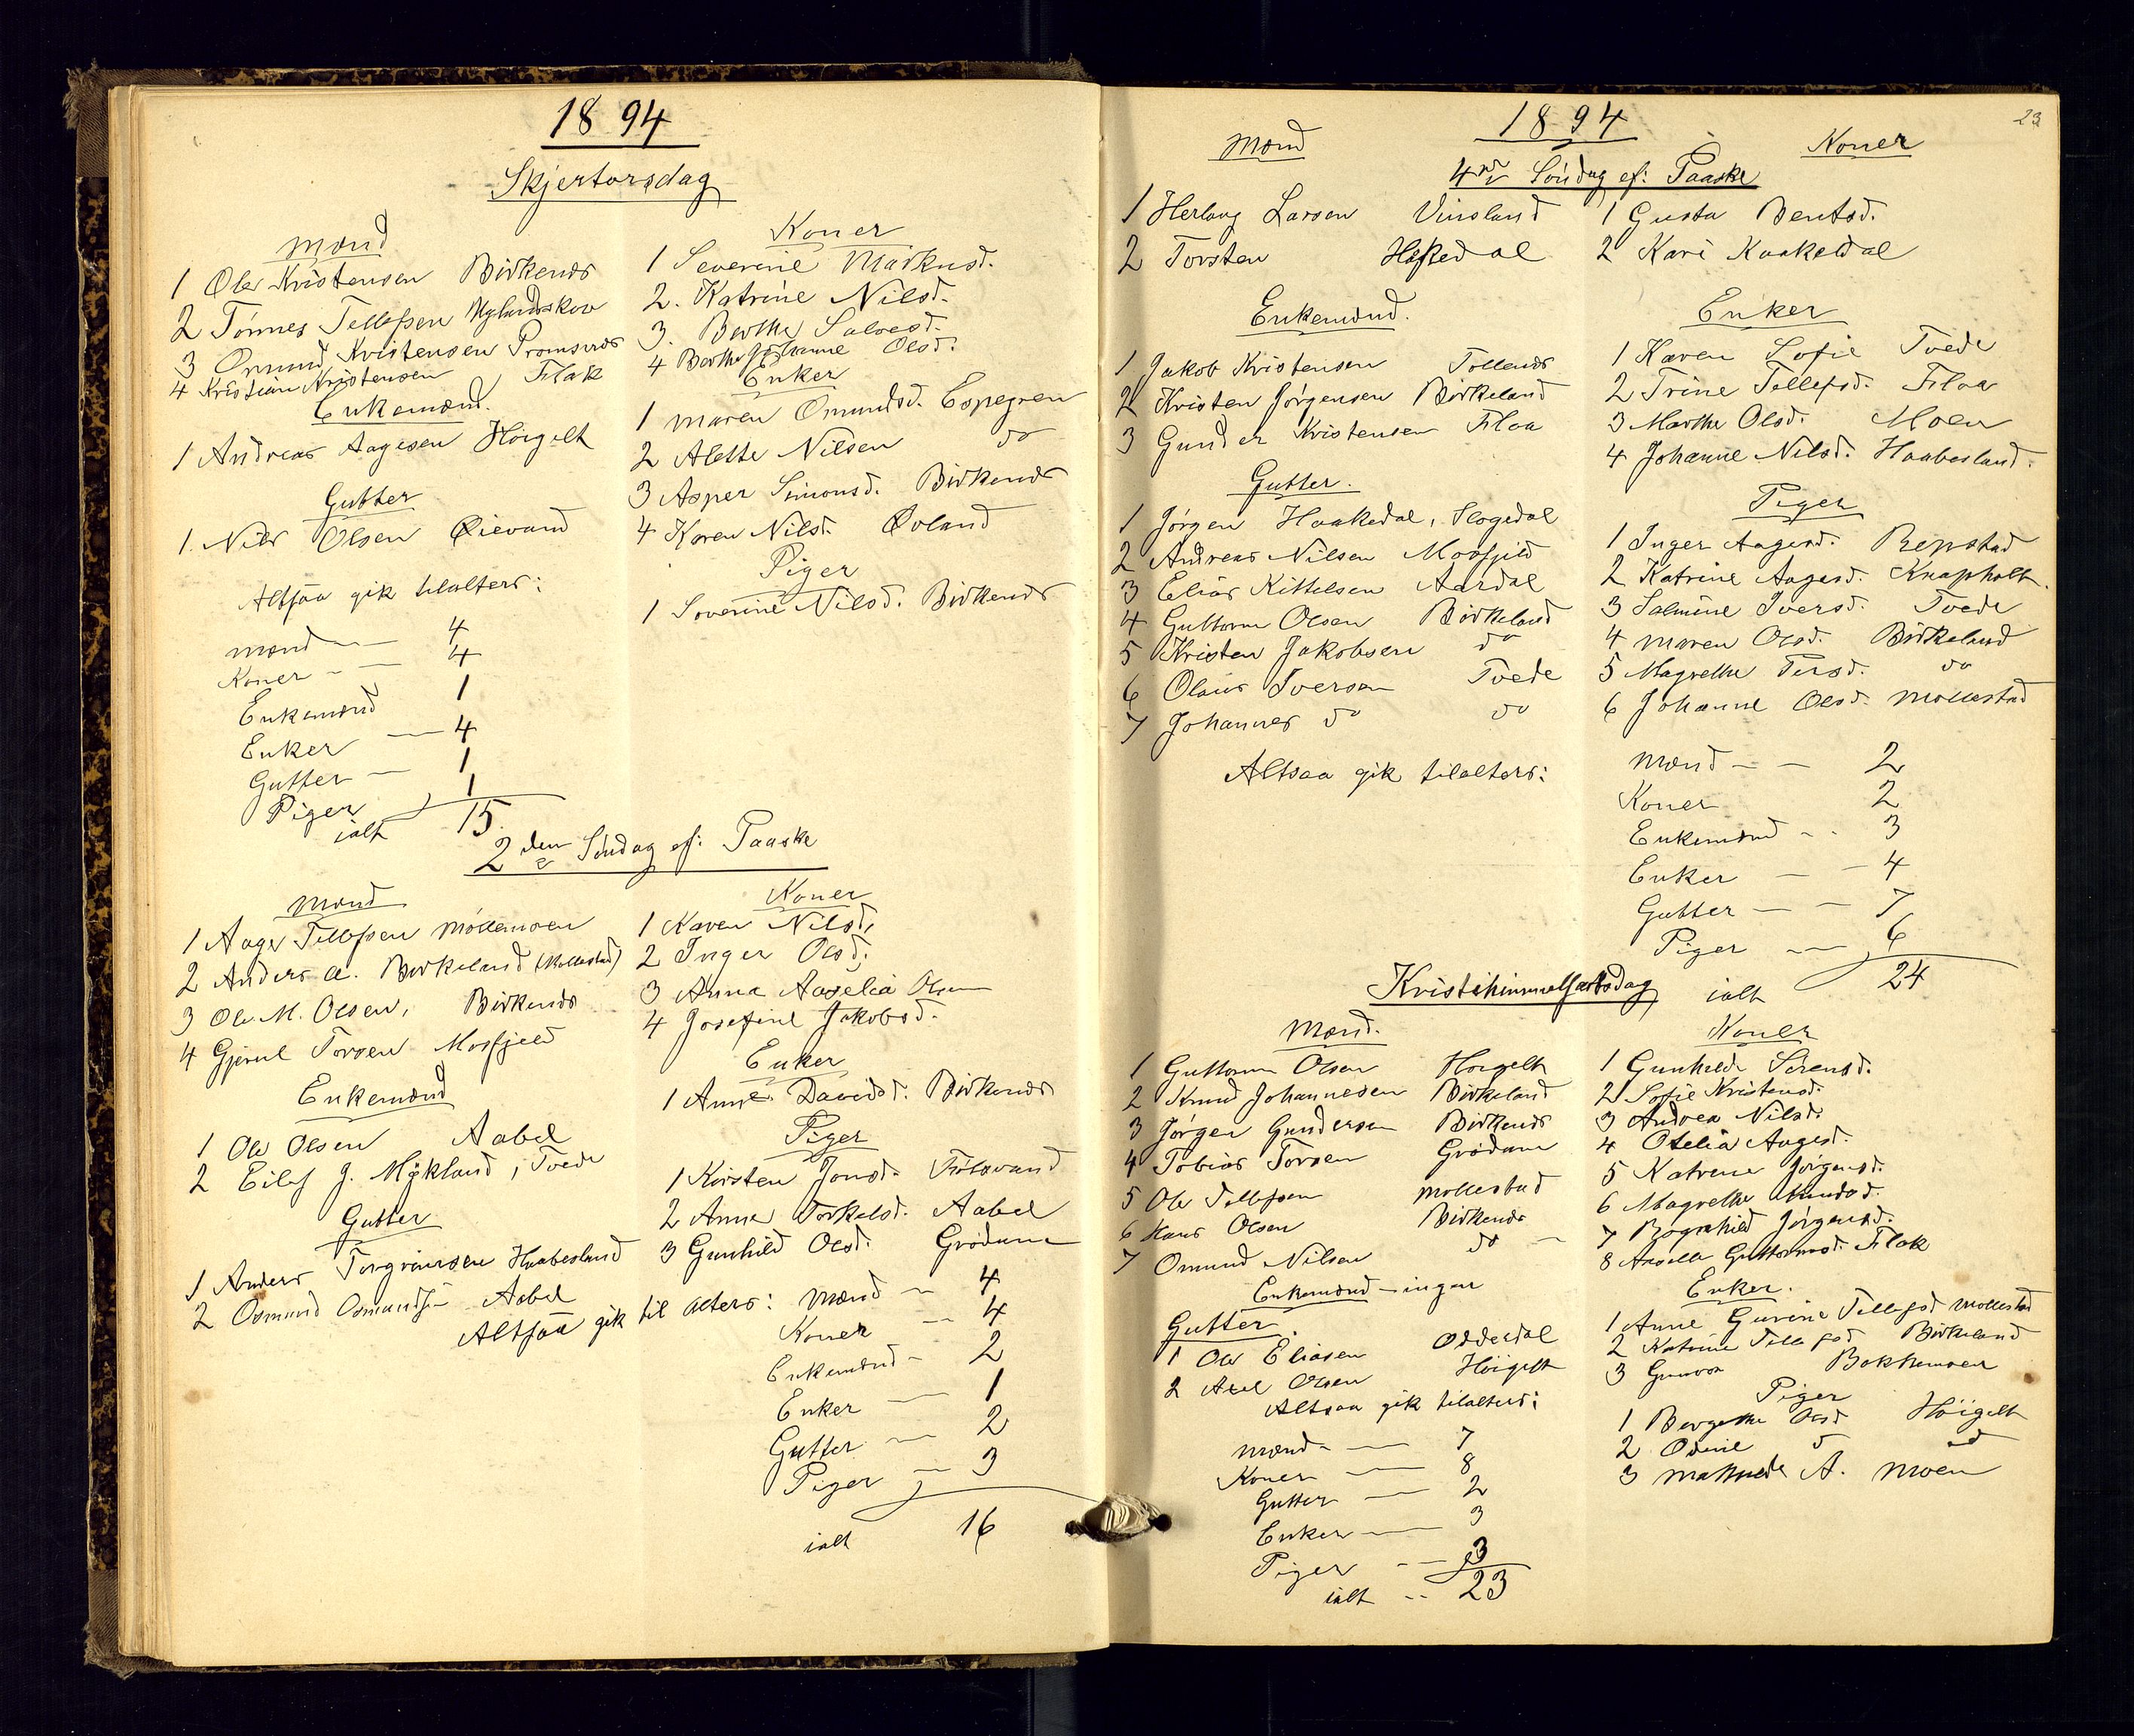 1894
Skjertorsdag
Mænd
1 Ole Kristensen Birkenes
2 Tønnes Tellefsen Uglandskov
3 Omund Kristensen
4 Kristian Kristensen Flak
Enkemænd.
1 Andreas Aagesen Höigelt
Gutter
1. Nils Olsen Øievand
Altsaa gik tilalters:
Mænd — 4
Koner — 4
Enkemænd 1
Enker — 4
Gutter — 1
Piger 1
ialt 15.
Koner
1 Severine Markusd.
2. Katrine Nilsd.
3. Berthe Salvesd.
4 Berthe Johanne Olsd.
Enker
1 Maren Omundsd. Espegren
2 Alette Nilsen do
3 Asper Simonsd. Birkenes
4 Karen Nilsd. Øvland
Piger
1 Severine Nilsd. Birkenes
2den Søndag ef: Paaske
Mænd
1 Aage Tellefsen Möllemoen
2 Anders A. Birkeland (Mollestad)
3 Ole M. Olsen, Birkenes
4 Gjerul Torsen Mosfjeld
Enkemænd
1 Ole Olsen Aabel
2 Eilef J. Mykland, Tvede
Gutter
1 Anders Torgrimsen Haabesland
2 Osmund Osmundsen Aabel
Koner
1 Karen Nilsd.
2 Inger Olsd.
3 Anna Aagelia Olsen
4 Josefine Jakobsd.
Enker
1 Anne Davidsd. Birkenes
Piger
1 Kirsten Jonsd.
2 Anne Torkelsd. Aabel
3 Gunhild Olsd. Grödum
Altsaa gik til alters: Mænd — 4
Koner — 4
Enkemænd — 2
Enker — 1
Gutter — 2
Piger — 3
ialt 16
23
1894
4de Söndag ef: Paaske
Mænd
1 Herlaug Larsen Vinsland
2 Torsten
Enkemænd.
1 Jakob Kristensen Tollenes
2 Kristen Jørgensen Birkeland
3 Gunder Kristensen Flaa
Gutter.
1 Jørgen Haakedal, Slogedal
2 Andreas Nilsen Mosfjeld
3 Elias Kittelsen Aardal
4 Guttorm Olsen Birkeland
5 Kristen Jakobsen do
6 Olaus Iversen Tvede
7 Johannes do do
Altsaa gik tilalters:
Koner
1 Gusta Bentsd.
2 Kari Kaakedal
Enker
1 Karen Sofie Tvede
2 Trine Tellefsd. Flaa
3 Marthe Olsd. Moen
4 Johanne Nilsd. Haabesland.
Piger
1 Inger Aagesd. Repstad
2 Katrine Aagesd. Knapholt.
3 Salmine Iversd. Tvede
4 Maren Olsd. Birkeland
5 Magrethe Tersd. do
6 Johanne Olsd. Mollestad
Mænd — 2
Koner 2
Enkemænd — 3
Enker — 4
Gutter — 7
Piger — 6
ialt 24
Kristihimmelfartsdag
Mænd.
1 Guttorm Olsen Horgelt
2 Knud Johannesen Birkeland
3 Jørgen Gundersen Birkenes
4 Tobias Torsen Grödum
5 Ole Tellefsen Mollestad
6 Hans Olsen Birkenes
7 Omund Nilsen do —
Enkemænd — ingen
Gutter.
1 Ole Eliasen Oddersdal
2 Axel Olsen Höigelt
Altsaa gik tilalters:
Mænd — 7
Koner — 8
Gutter — 2
Enker — 3
Piger — 3
ialt -- 23
Koner
1 Gunhilde Sörensd.
2 Sofie Kristensd.
3 Andrea Nilsd.
4 Otelia Aagesd.
5 Katrine Jörgensd.
6 Magrethe Knudsd.
7 Jörgensd.
8 Guttormsd. Flak
Enker.
1 Anne Gurine Tellefsd Mollestad
2 Katrine Tellefsd Birkeland
3 Gunvor
Piger
1 Bergithe Olsd Höigelt
2 Odine d do
3 Mathilde A. Moen